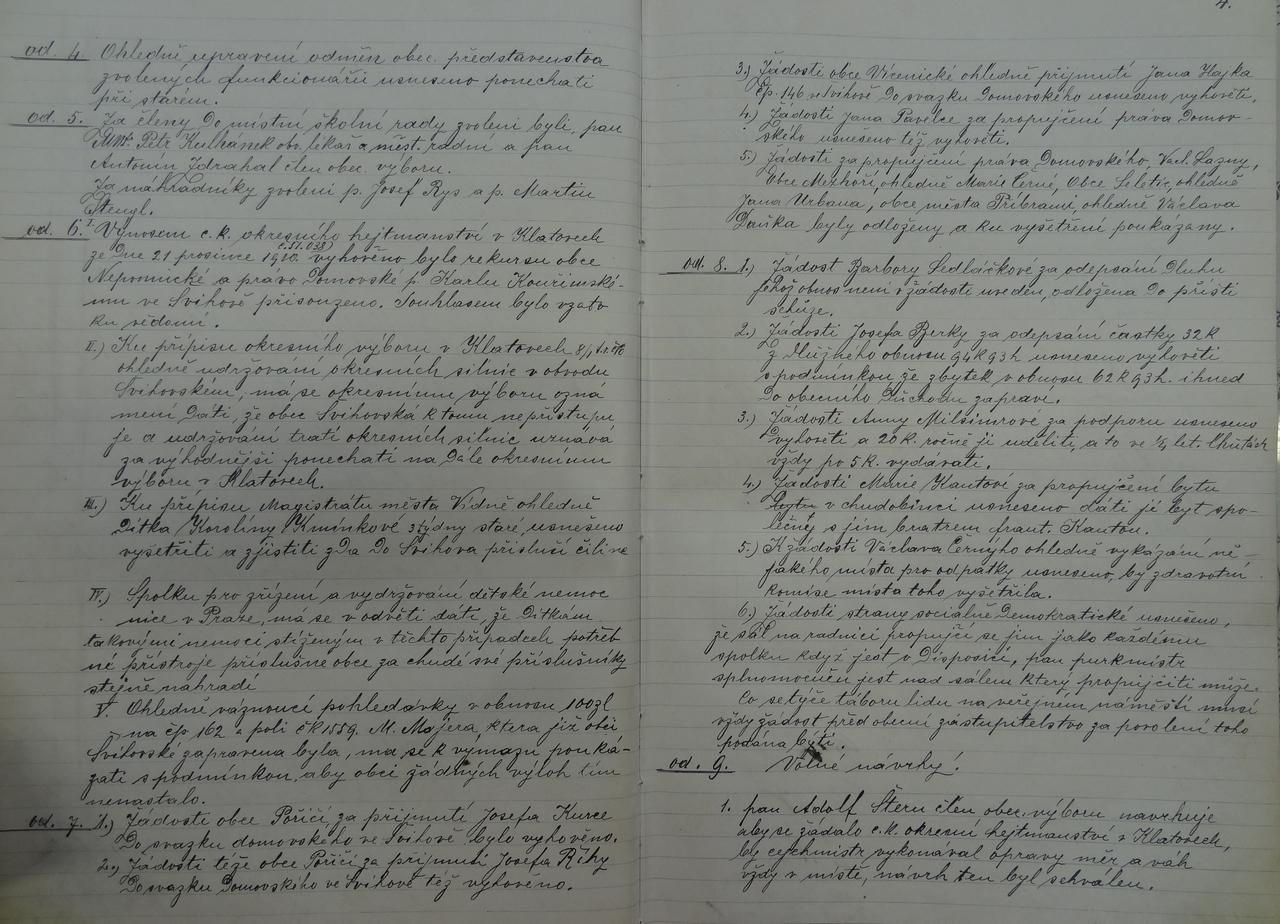 od. 4. Ohledně upravení odměn obec. představenstva
zvolených funkcionářů usneseno ponechati
při starém.
od. 5. Za členy do místní školní rady zvoleni byli, pan
Petr Kulhánek obv. lékař a měst. radní a pan
Antonín Zdrahal člen obec. výboru.
Za náhradníky zvoleni p. Josef Rys a p. Martin
Stengl.
od. 6. I. Výnosem c. k. okresního hejtmanství v Klatovech
ze dne 21 prosince 1910. č. 51.038) vyhověno bylo rekursu obce
Nepomucké a právo domovské p. Karlu Kouřimské-
mu ve Švihově přisouzeno. Souhlasem bylo vzato
ku vědomí.
II.) Ku přípisu okresního výboru v Klatovech
ohledně udržování okresních silnic v obvodu
Švihovském, má se okresnímu výboru ozná
mení dáti, že obec Švihovská k tomu nepřistupu
je a udržování tratí okresních silnic uznává
za výhodnější ponechati na dále okresnímu
výboru v Klatovech.
III.) Ku přípisu Magistrátu města Vídně ohledně
dítka Karolíny Kmínkové 3 týdny staré, usneseno
vyšetřiti a zjistiti zda do Švihova přísluší čili ne
IV.) Spolku pro zřízení a vydržování dětské nemoc
nice v Praze, má se v odvětí dáti, že dítkám
takovými nemocí stíženým v těchto případech potřeb
né přístroje příslušné obce za chudé své příslušníky
stejně nahradí
V. Ohledně váznoucí pohledávky v obnosu 100 zl
na čp 162 a poli čk 1559. M. Majera, která již obci
Švihovské zapravena byla, má se k výmazu pouká-
zati s podmínkou, aby obci žádných výloh tím
nenastalo.
od. 7. 1.) Žádosti obce Poříčí za přijmutí Josefa Kurce
do svazku domovského ve Švihově, bylo vyhověno.
2.) Žádosti téže obce Poříčí za přijmutí Josefa Říhy
do svazku domovského ve Švihově též vyhověno.
4.
3.) Žádosti obce Vícenické ohledně přijmutí Jana Hajka
čp. 146 ve Švihově do svazku domovského usneseno vyhověti.
4.) Žádosti Jana Pavelce za propujčení práva domov-
ského usneseno též vyhověti.
5.) Žádosti za propujčení práva domovského, Vacl. Lazny,
Obce Mezhoří, ohledně Marie Černé, Obce Seletic, ohledně
Jana Urbana, obce města Příbrami, ohledně Václava
Dańka byly odloženy a ku vyšetření poukázany.
od. 8. 1.) Žádost Barbory Sedláčkové za odepsání dluhu
jehož obnos není v žádosti uveden, odložena do příští
schůze.
2.) Žádosti Josefa Berky za odepsání částky 32 K
z dlužneho obnosu 94 K 93 h usneseno vyhověti
s podmínkou, že zbytek v obnosu 62 K 93 h. ihned
do obecního důchodu zapraví.
3.) Žádosti Anny Milsimrové za podporu usneseno
vyhověti a 20 K. ročně jí uděliti, a to ve ¼ let. lhůtách
vždy po 5 K. vydávati.
4.) Žádosti Marie Kantové za propujčení bytu
bytu v chudobinci usneseno dáti jí byt spo-
lečný s jím bratrem frant. Kantou.
5.) K žádosti Václava Černýho ohledně vykázání ně-
jakého místa pro odpátky usneseno, by zdravotní
komise místa toho vyšetřila.
6.) Žádosti strany sociálně demokratické usneseno,
že sál na radnici propujčí se jim jako každému
spolku když jest v disposici, pan purkmistr
splnomocněn jest nad sálem který propujčiti může.
Co se týče táboru lidu na veřejném náměstí musí
vždy žádost před obecní zástupitelstvo za povolení toho
podána býti.
od. 9. Volné návrhy.
1. pan Adolf Štern člen obec. výboru navrhuje
aby se žádalo c. k. okresní hejtmanství v Klatovech,
by cejchmistr vykonával opravy měr a váh
vždy v místě, návrh ten byl schválen.